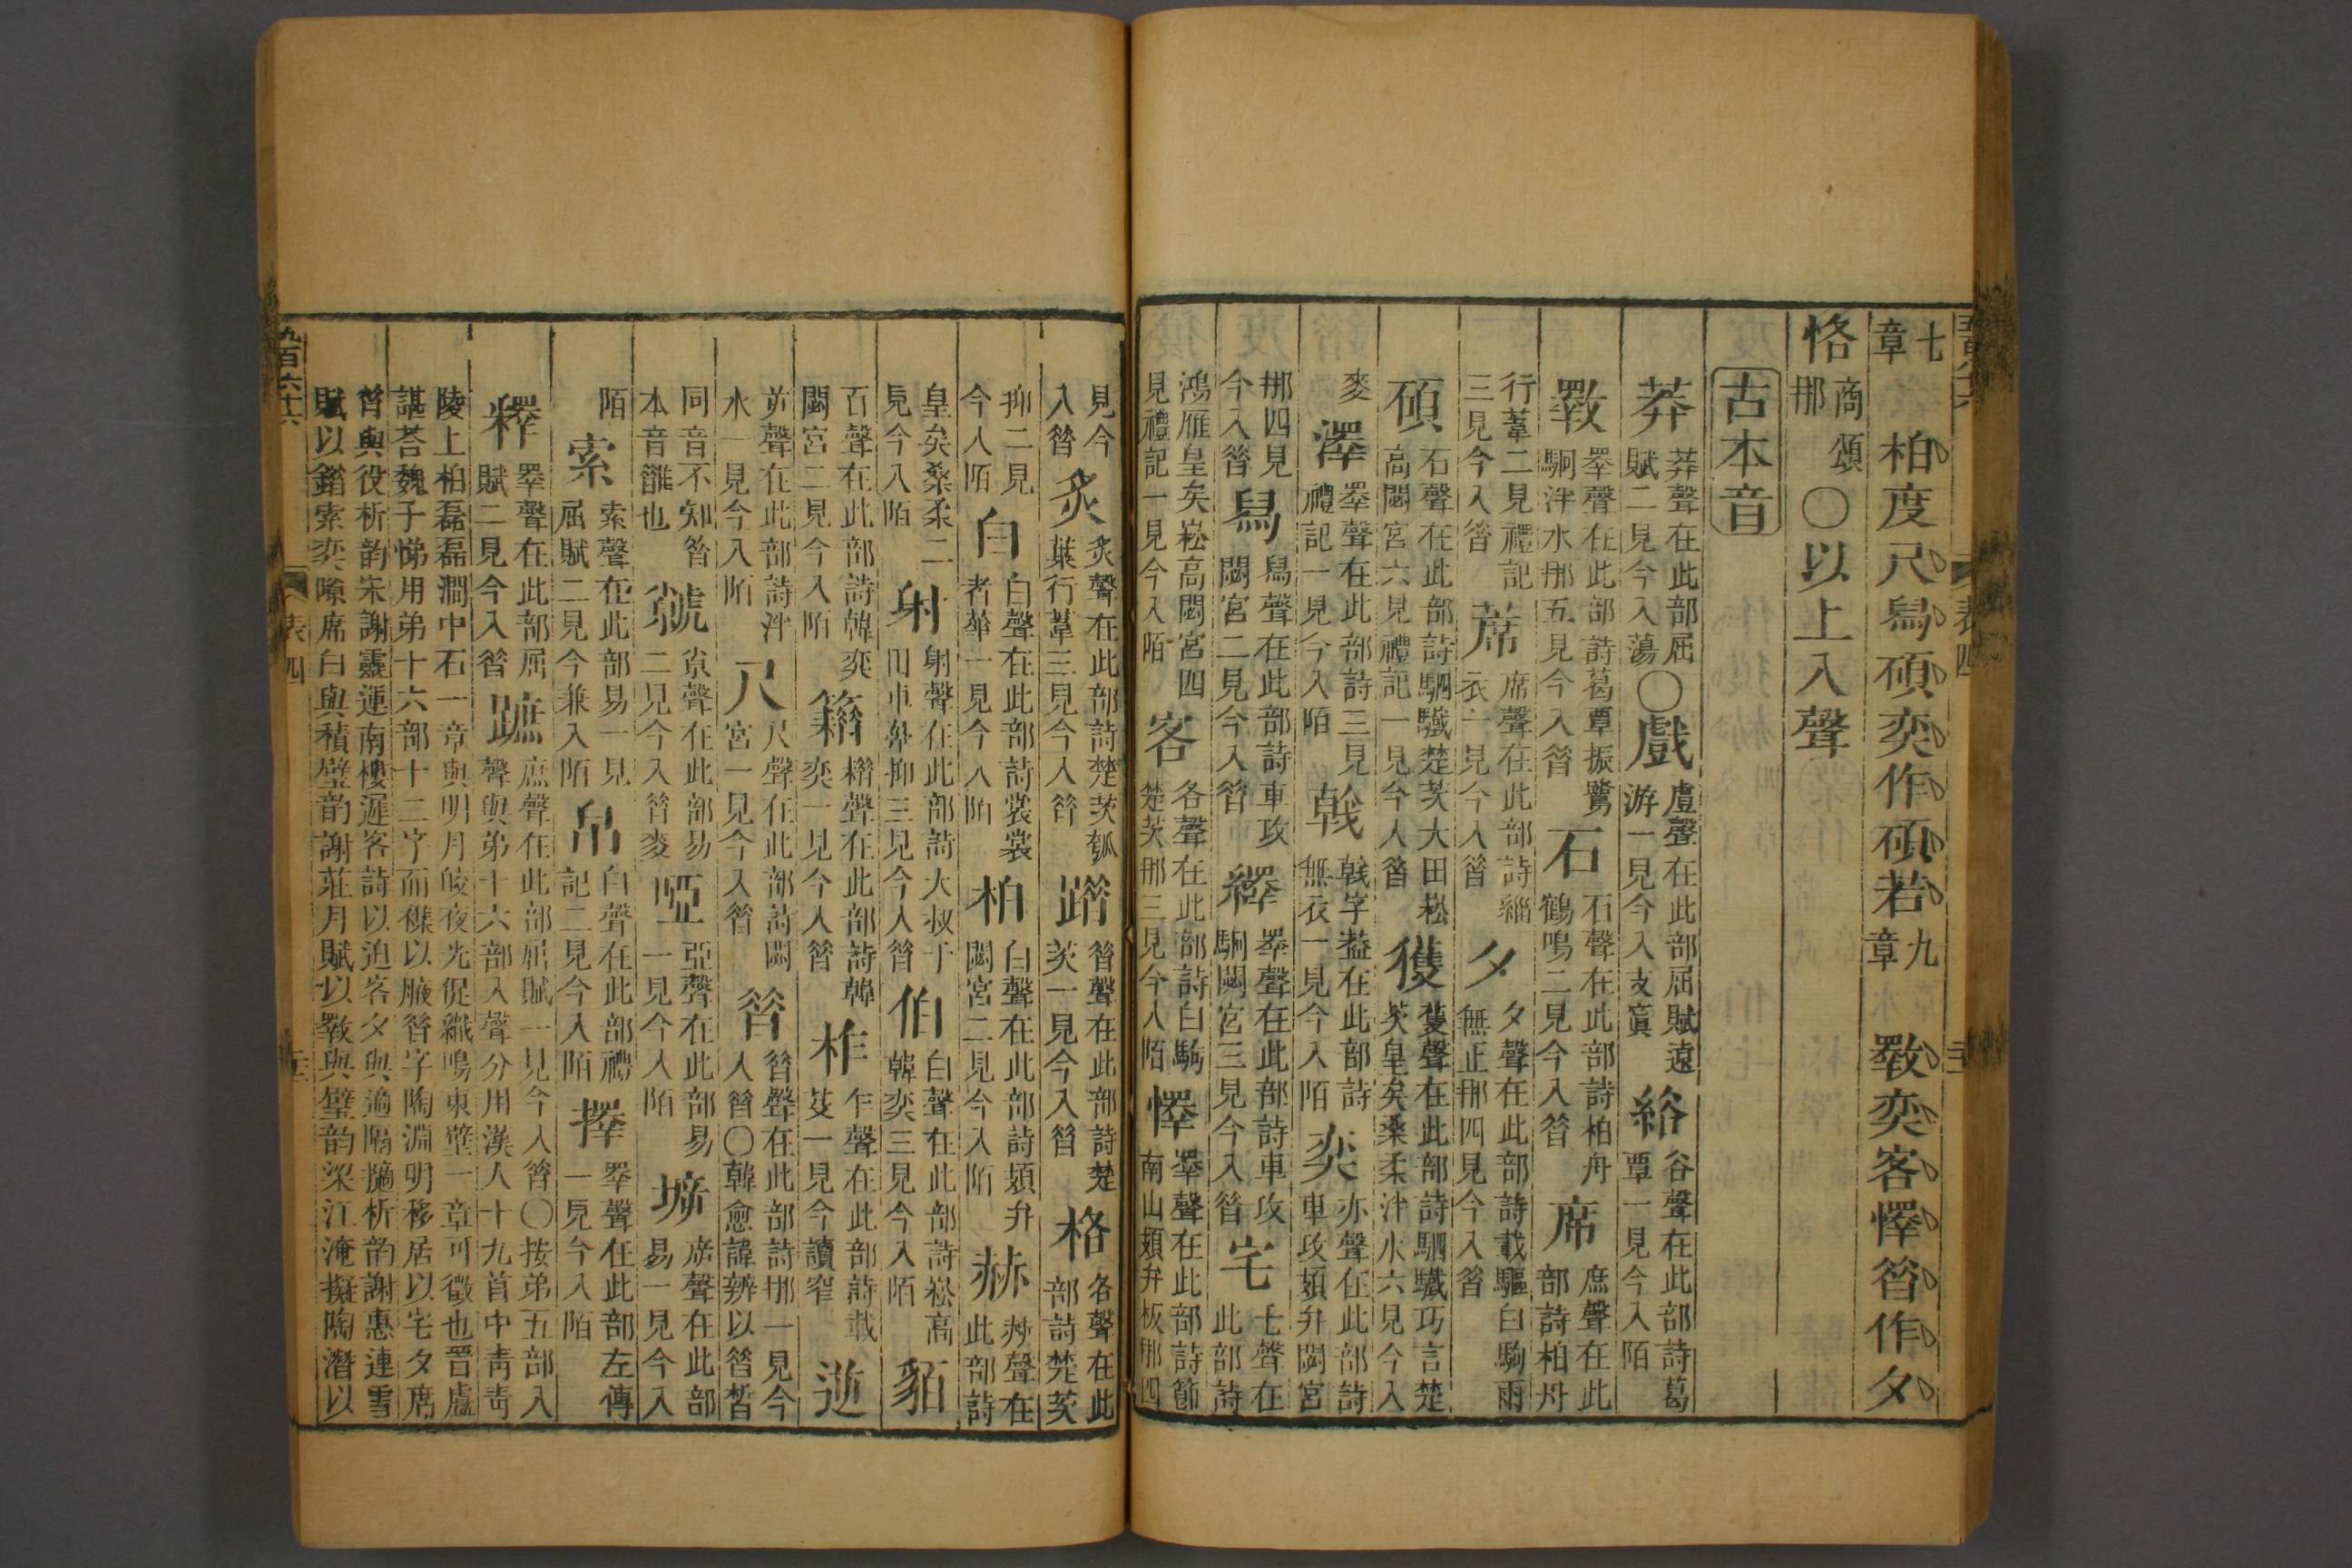 七章　柏度尺舄碩奕作碩若九章　斁奕客懌昔作夕
恪商頌那〇以上入聲
古本音
莽莽聲在此部屈賦二見今入蕩〇戲䖒聲在此部屈賦遠游一見今入支寘綌谷聲在此部詩葛覃一見今入陌
斁睪聲在此部詩葛覃振鷺駉泮水那五見今入昔石石聲在此部詩柏舟鶴鳴二見今入昔席庶聲在此部詩柏舟
行葦二見禮記三見今入昔蓆席聲在此部詩緇衣一見今入昔夕夕聲在此部詩載驅白駒雨無正那四見今入昔
碩石聲在此部詩駟驖楚茨大田崧高閟宮六見禮記一見今入昔獲蒦聲在此部詩駟驖巧言楚茨皇矣桑柔泮水六見今入
麥澤睪聲在此部詩三見禮記一見今入陌戟戟字葢在此部詩無衣一見今入陌奕亦聲在此部詩車攻頍弁閟宮
那四見今入昔舄舄聲在此部詩車攻閟宮二見今入昔繹睪聲在此部詩車攻駉閟宮三見今入昔宅乇聲在此部詩
鴻雁皇矣崧高閟宮四見禮記一見今入陌客各聲在此部詩白駒楚茨那三見今入陌懌睪聲在此部詩節南山頍弁板那四
見今入昔炙炙聲在此部詩楚茨瓠葉行葦三見今入昔踖昔聲在此部詩楚茨一見今入昔格各聲在此部詩楚茨
抑二見今入陌白白聲在此部詩裳裳者華一見今入陌柏白聲在此部詩頍弁閟宮二見今入陌赫赫聲在此部詩
皇矣桑柔二見今入陌射射聲在此部詩大叔于田車舝抑三見今入昔伯白聲在此部詩崧高韓奕三見今入陌貊
百聲在此部詩韓奕閟宮二見今入陌籍耤聲在此部詩韓奕一見今入昔柞乍聲在此部詩載芟一見今讀窄逆
屰聲在此部詩泮水一見今入陌尺尺聲在此部詩閟宮一見今入昔昔昔聲在此部詩那一見今入昔〇韓愈諱辨以昔晳
同音不知昔本音雒也虩𡭴聲在此部易二見今入昔麥啞亞聲在此部易一見今入陌㙤㡿聲在此部易一見今入
陌索索聲在此部易一見屈賦二見今兼入陌帛白聲在此部禮記二見今入陌擇睪聲在此部左傳一見今入陌
釋睪聲在此部屈賦二見今入昔蹠庶聲在此部屈賦一見今入昔〇按弟五部入聲與弟十六部入聲分用漢人十九首中靑靑
陵上柏磊磊澗中石一章與明月皎夜光促織鳴東壁一章可徵也晉盧諶荅魏子悌用弟十六部十二字而襍以腋昔字陶淵明移居以宅夕席
昔與役析韵宋謝靈運南樓遲客詩以迫客夕與適隔摘析韵謝惠連雪賦以鎦索奕隙席白與積璧韵謝莊月賦以斁與璧韵梁江淹擬陶潛以
表四
表四